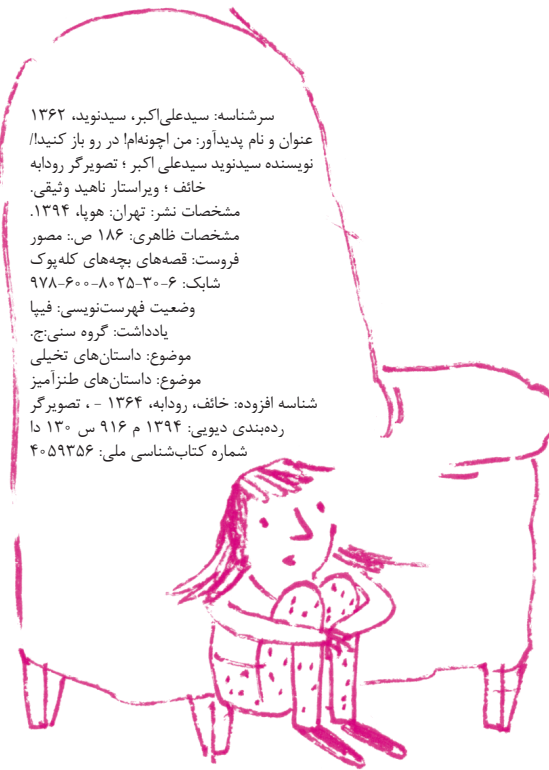 سرشناسه: سیدعلی‌اکبر، سیدنوید، ۱۳۶۲
عنوان و نام پدیدآور: من اچونه‌ام! در رو باز کنید!/
نویسنده سیدنوید سیدعلی اکبر ؛ تصویرگر رودابه
خائف ؛ ویراستار ناهید وثیقی.
مشخصات نشر: تهران: هوپا، ۱۳۹۴.
مشخصات ظاهری: ۱۸۶ ص.: مصور
فروست: قصه‌های بچه‌های کله‌پوک
شابک: ۶-۳۰-۸۰۲۵-۶۰۰-۹۷۸
وضعیت فهرست‌نویسی: فیپا
یادداشت: گروه سنی:ج.
موضوع: داستان‌های تخیلی
موضوع: داستان‌های طنزآمیز
شناسه افزوده: خائف، رودابه، ۱۳۶۴ - ، تصویرگر
رده‌بندی دیویی: ۱۳۹۴ م ۹۱۶ س ۱۳۰ دا
شماره کتاب‌شناسی ملی: ۴۰۵۹۳۵۶